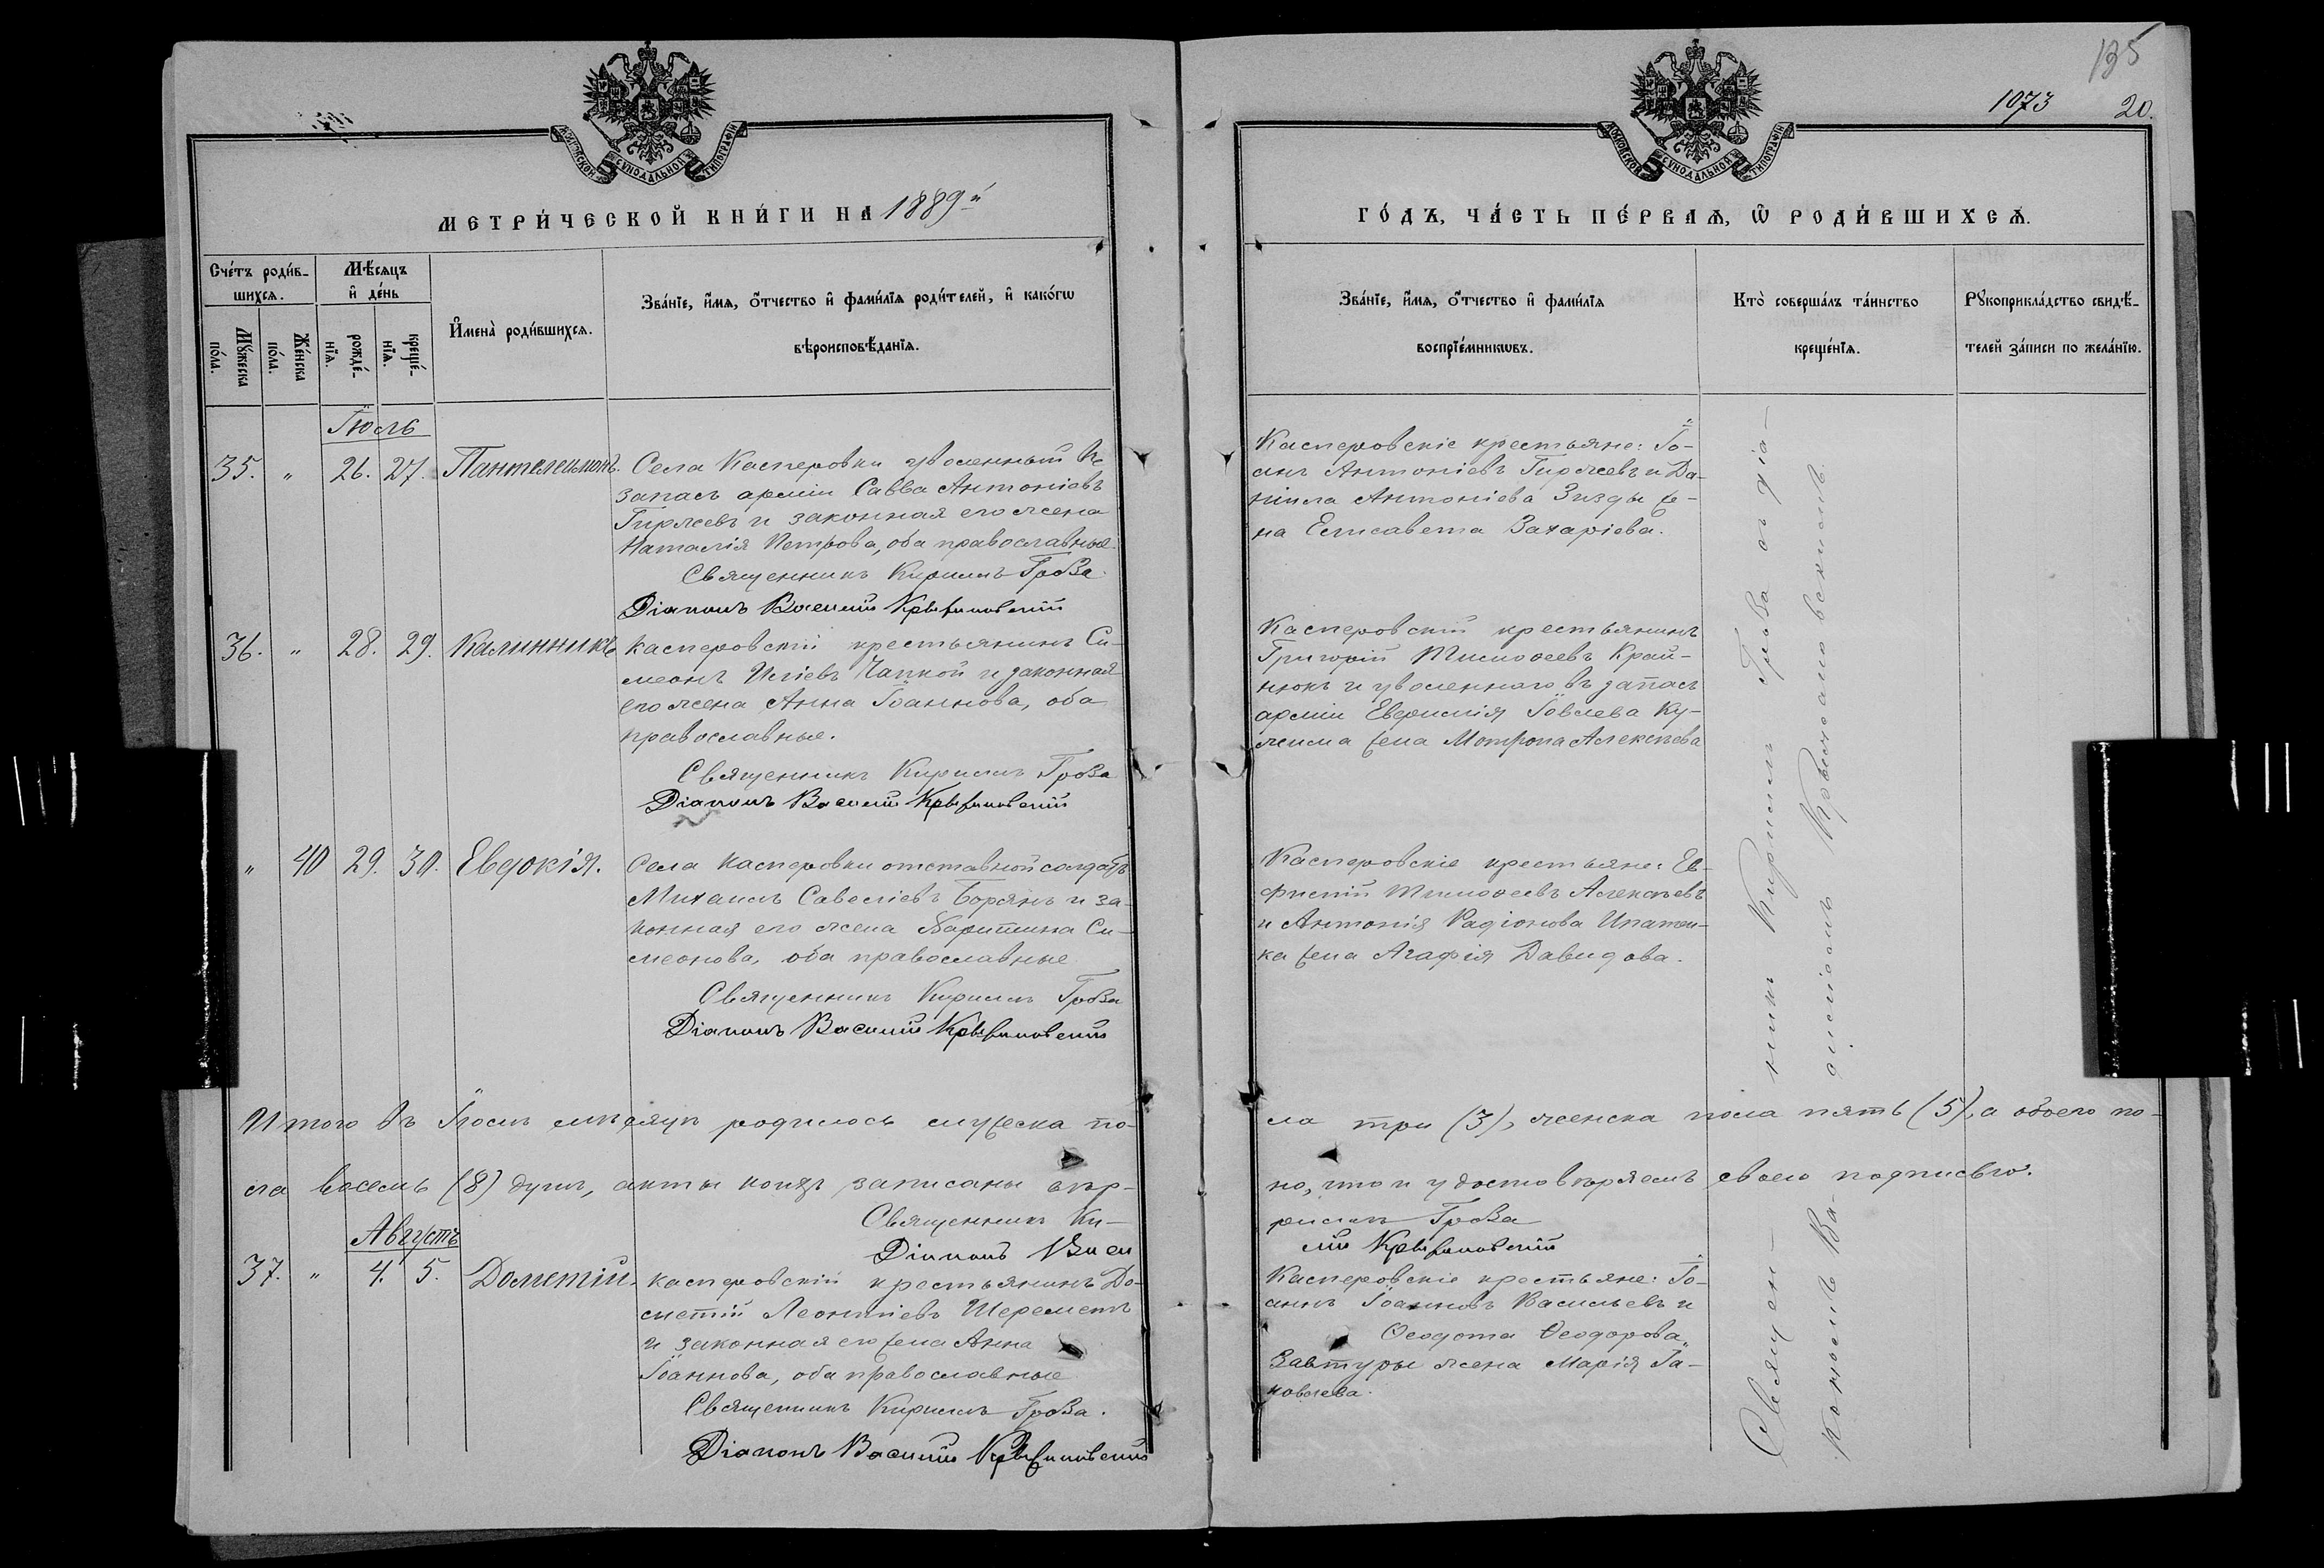 135
1073
20.
МЕТРИ́ЧЕСКОЙ КНИ́ГИ НА 1889й
Сче́тъ роди́в-
шихсѧ.
Мѣ́сѧцъ
и҆ де́нь
Мꙋ́жеска
по́ла.
Же́нска
по́ла.
рожде́-
нїѧ.
креще́-
нїѧ.
И҆мена̀ роди́вшихсѧ.
Зва́нїе, и҆́мѧ, ѻ҆́тчество и҆ фами́лїѧ роди́телей, и҆ како́гѡ
вѣроисповѣ́данїѧ.
Іюль
35. " 26. 27. Пантелеимонъ.
Села Касперовки уволенный въ
запасъ арміи Савва Антоніевъ
Гиржевъ и законная его жена
Наталія Петрова, оба православные
Священникъ Кириллъ Гроза
Діаконъ Василій
36. " 28. 29. Калинникъ
касперовскій крестьянинъ Си-
меонъ Иліевъ Чапкой и законная
его жена Анна Іоаннова, оба
православные.
Священникъ Кириллъ Гроза
Діаконъ Василій
" 40 29. 30. Евдокія.
Села Касперовки отставной солдатъ
Михаилъ Савеліевъ Борянъ и за-
конная его жена Харитина Си-
меонова, оба православные
Священникъ Кириллъ Гроза
Діаконъ Василій
Итого въ Іюлѣ мѣсяцѣ родилось мужеска по-
ла восемь (8) душъ, акты коихъ записаны вѣр-
Священникъ Ки-
Діаконъ Васи
Августъ
37. " 4. 5. Дометій.
касперовскій крестьянинъ До-
метій Леонтіевъ Шереметъ
и законная его жена Анна
Іоаннова, оба православные
Священникъ Кириллъ Гроза.
Діаконъ Василій
ГО́ДЪ, ЧА́СТЬ ПЕ́РВАѦ, Ѡ҆ РОДИ́ВШИХСѦ.
Зва́нїе, и҆́мѧ, ѻ҆́тчество и҆ фами́лїѧ
воспрїе́мникѡвъ.
Кто̀ соверша́лъ та́инство
креще́нїѧ.
Рꙋкоприкла́дство свидѣ́-
телей за́писи по жела́нїю.
Касперовскіе крестьяне: Іо-
анъ Антоніевъ Гиржевъ и Да-
ніила Антоніева Зизды же-
на Елисавета Захаріева.
Касперовскій крестьянинъ
Григорій Тимоѳеевъ Край-
нюкъ и уволеннаго въ запасъ
арміи Евфимія Іовлева Ку-
жила жена Матрона Алексѣева
Касперовскіе крестьяне: Ев-
фимій Тимоѳеевъ Алексѣевъ
и Антонія Радіонова Ипатен-
ка жена Агафія Давидова.
ла три (3), женска пола пять (5), а обоего по-
но, что и удостовѣряемъ своею подписью.
риллъ Гроза
лій
Касперовскіе крестьяне: Іо-
аннъ Іоанновъ Васильевъ и
Ѳеодота Ѳеодорова
Завтуры жена Марія Іа-
ковлева.
Священ-
никъ Кириллъ Гроза съ діа-
кономъ Ва-